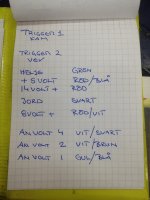 TRIGGER 1
KAM
TRIGGER 2
VEV
GRÖN
+ 5 VOLT RÖD/BLÅ
14 VOLT + RÖD
JORD SVART
8 VOLT + RÖD/VIT
AN VOLT 4 VIT/SVART
AN VOLT 2 VIT/BRUN
AN VOLT 1 GUL/BLÅ